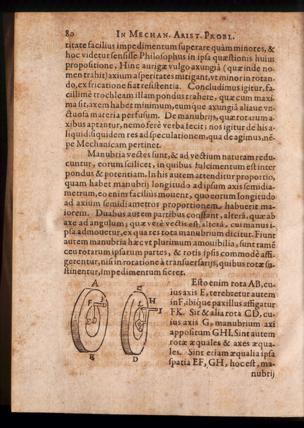 80 IN MECHAN. ARIST. PROBL.
titate facilius impedimentum superare quàm minores, &
hoc videtur sensisse Philosophus in ipsa quæstionis huius
propositione. Hinc aurigæ vulgo axungiâ (quæ inde no-
men trahit) axium asperitates mitigant, vt minor in rotan-
do, ex fricatione fiat resistentia. Concludimus igitur, fa-
cillimè trochleam illam pondus trahere, quæ cum maxi-
ma sit, axem habet minimum, eumque axungiâ aliaue vn-
ctuosa materia perfusum. De manubrijs, quæ rotarum a-
xibus aptantur, nemo ferè verba fecit: nos igitur de his a-
liquid, siquidem res ad speculationem, qua de agimus, nē-
pe Mechanicam pertinet.
Manubria vectes sunt, & ad vectium naturam redu-
cuntur, eorum scilicet, in quibus fulcimentum est inter
pondus & potentiam. In his autem attenditur proportio,
quam habet manubrij longitudo ad ipsum axis semidia-
metrum, eo enim facilius mouent, quo eorum longitudo
ad axium semidiametros proportionem habuerit ma-
iorem. Duabus autem partibus constant, alterâ, quæ ab
axe ad angulum; quæ verè vectis est, alterâ, cui manus i-
psa admouetur, ex qua res tota manubrium dicitur. Fiunt
autem manubria hæc vt plurimum amouibilia, sunt tamē
ceu rotarum ipsarum partes, & rotis ipsis commodè affi-
gerentur, nisi in rotatione à transuersarijs, quibus rotæ su-
stinentur, impedimentum fieret.
Esto enim rota AB, cu-
ius axis E, terebretur autem
in F, ibique paxillus affigatur
FK. Sit & alia rota CD, cu-
ius axis G, manubrium axi
appositum GHI. Sint autem
rotæ æquales & axes æqua-
les. Sint etiam æqualia ipsa
spatia EF, GH, hoc est, ma-
nubrij
A
F
K
E
B
C
H
I
G
D